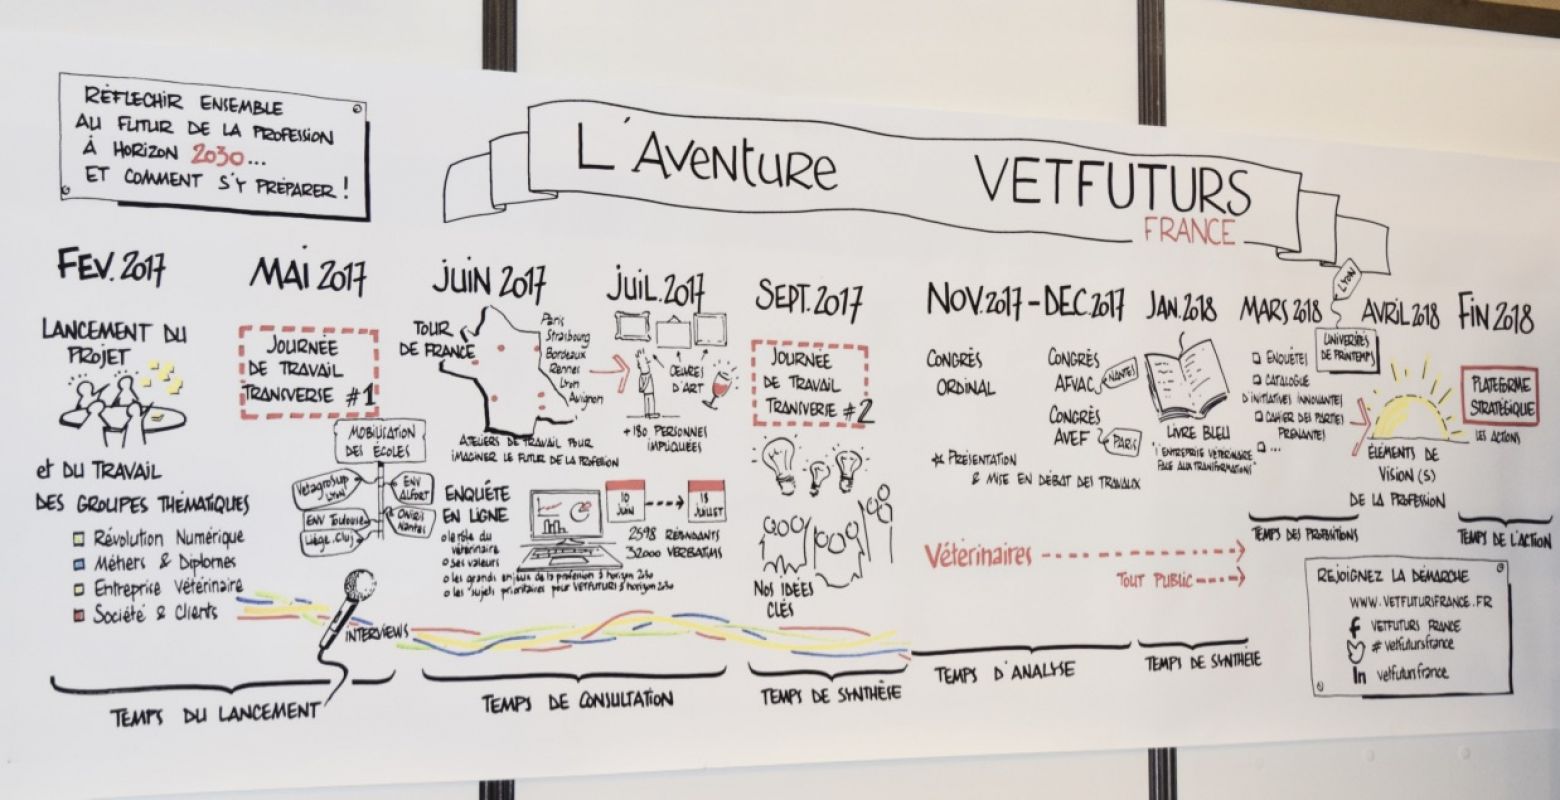 RÉFLÉCHIR ENSEMBLE
AU FUTUR DE LA PROFESSION
À HORIZON 2030...
ET COMMENT S'Y PRÉPARER !
L'AVENTURE VETFUTURS
FRANCE
FEV. 2017
LANCEMENT DU
PROJET
et DU TRAVAIL
DES GROUPES THÉMATIQUES
Révolution Numérique
Métiers & Diplomes
Entreprise Vétérinaire
Société & Clients
MAI 2017
JOURNÉE
DE TRAVAIL
TRANSVERSE #1
MOBILISATION
DES ECOLES
VetagroSup
LYON
ENV
ALFORT
ENV Toulouse
ONIRIS
Nantes
Liège. Cluj
INTERVIEWS
TEMPS DU LANCEMENT
JUIN 2017
TOUR
DE FRANCE
Paris
Strasbourg
Bordeaux
Rennes
Lyon
Avignon
ATELIERS DE TRAVAIL POUR
IMAGINER LE FUTUR DE LA PROFESSION
ENQUÊTE
EN LIGNE
le rôle du
vétérinaire
ses valeurs
les grands enjeux de la profession à horizon 2030
les "sujets prioritaires pour VETFUTURS à horizon 2030
JUIL. 2017
ŒUVRES
D'ART
+180 PERSONNES
IMPLIQUÉES
10
JUIN
18
JUILLET
2598 RÉPONDANTS
32000 VERBATIMS
TEMPS DE CONSULTATION
SEPT. 2017
JOURNÉE
DE TRAVAIL
TRANSVERSE #2
NOS IDÉES
CLÉS
TEMPS DE SYNTHÈSE
NOV. 2017 - DEC. 2017
CONGRÈS
ORDINAL
CONGRÈS
AFVAC
NANTES
CONGRÈS
AVEF
PARIS
PRÉSENTATION
& MISE EN DÉBAT DES TRAVAUX
Vétérinaires
TOUT PUBLIC
TEMPS D'ANALYSE
JAN. 2018
LIVRE BLEU
"ENTREPRISE VÉTÉRINAIRE
FACE AUX TRANSFORMATIONS"
TEMPS DE SYNTHÈSE
MARS 2018
ENQUÊTES
CATALOGUE
D'INITIATIVES INNOVANTES
CAHIER DES PARTIES
PRENANTES
...
LYON
UNIVERSITÉS
DE PRINTEMPS
AVRIL 2018
ÉLÉMENTS DE
VISION(S)
DE LA PROFESSION
TEMPS DES PROPOSITIONS
FIN 2018
PLATEFORME
STRATÉGIQUE
LES ACTIONS
TEMPS DE L'ACTION
REJOIGNEZ LA DÉMARCHE
WWW.VETFUTURSFRANCE.FR
f VETFUTURS FRANCE
# vetfutursfrance
in vetfutursfrance